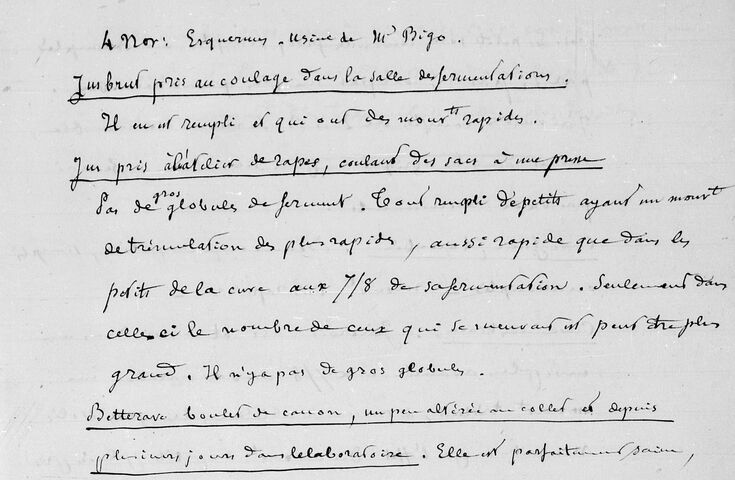 4 Nov: Esquermes. usine de Mr Bigo.
Jus brut pris au coulage dans la salle des fermentations.
Il en est rempli et qui ont des mouvts rapides.
Jus pris à l'atelier de rapes, coulant des sacs à une presse
Pas de gros globules de ferment. Tout rempli de petits ayant un mouvt
de trémulation des plus rapides, aussi rapide que dans les
petits de la cuve aux 7/8 de sa fermentation. Seulement dans
celle ci le nombre de ceux qui se meuvent est peut être plus
grand. Il n'y a pas de gros globules.
Betterave boulet de canon, un peu altérée au collet et depuis
plusieurs jours dans le laboratoire. Elle est parfaitement saine,